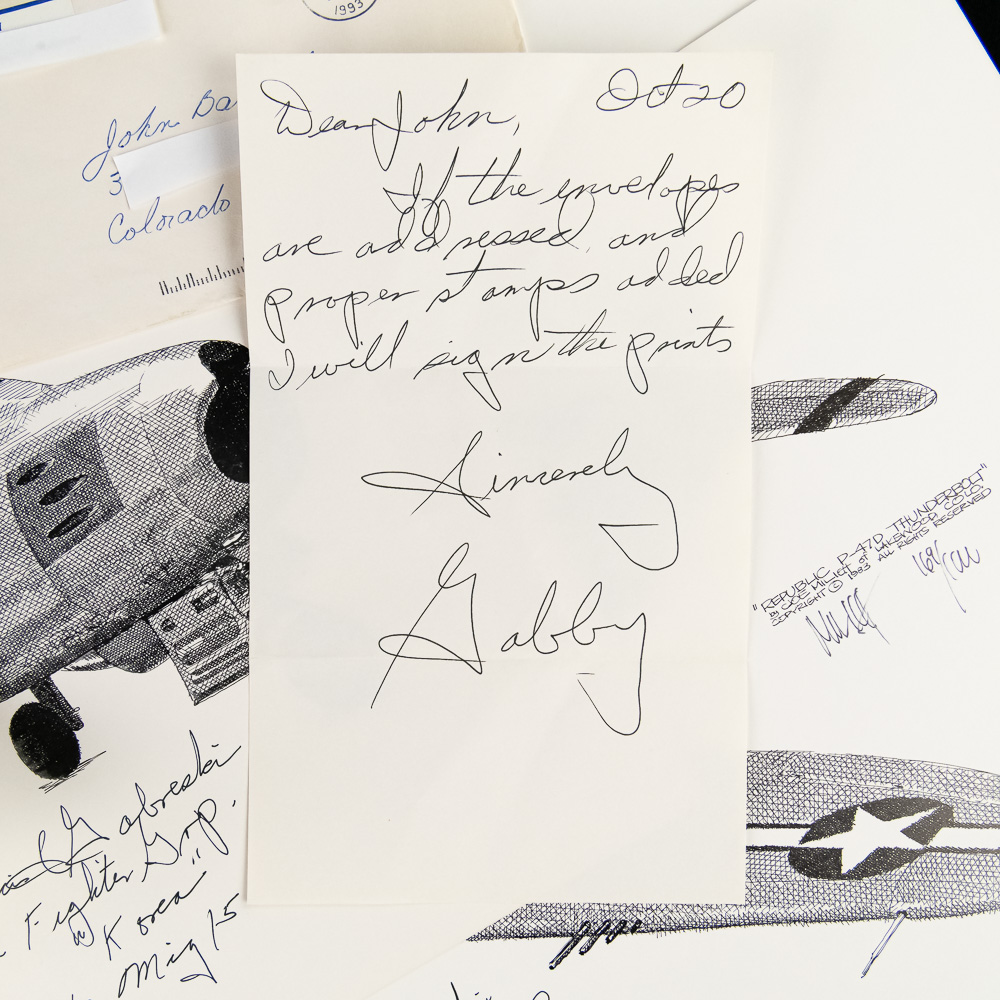 1993
John Ba
3
Colorado
Dear John, Oct 20
If the envelopes
are addressed, and
proper stamps added
I will sign the prints
Sincerely
Gabby
"REPUBLIC P-47D THUNDERBOLT"
BY JOE MILICH OF LAKEWOOD COLO.
COPYRIGHT © 1993 ALL RIGHTS RESERVED
Gabreski
Fighter Grp.
Korea"
Mig 15